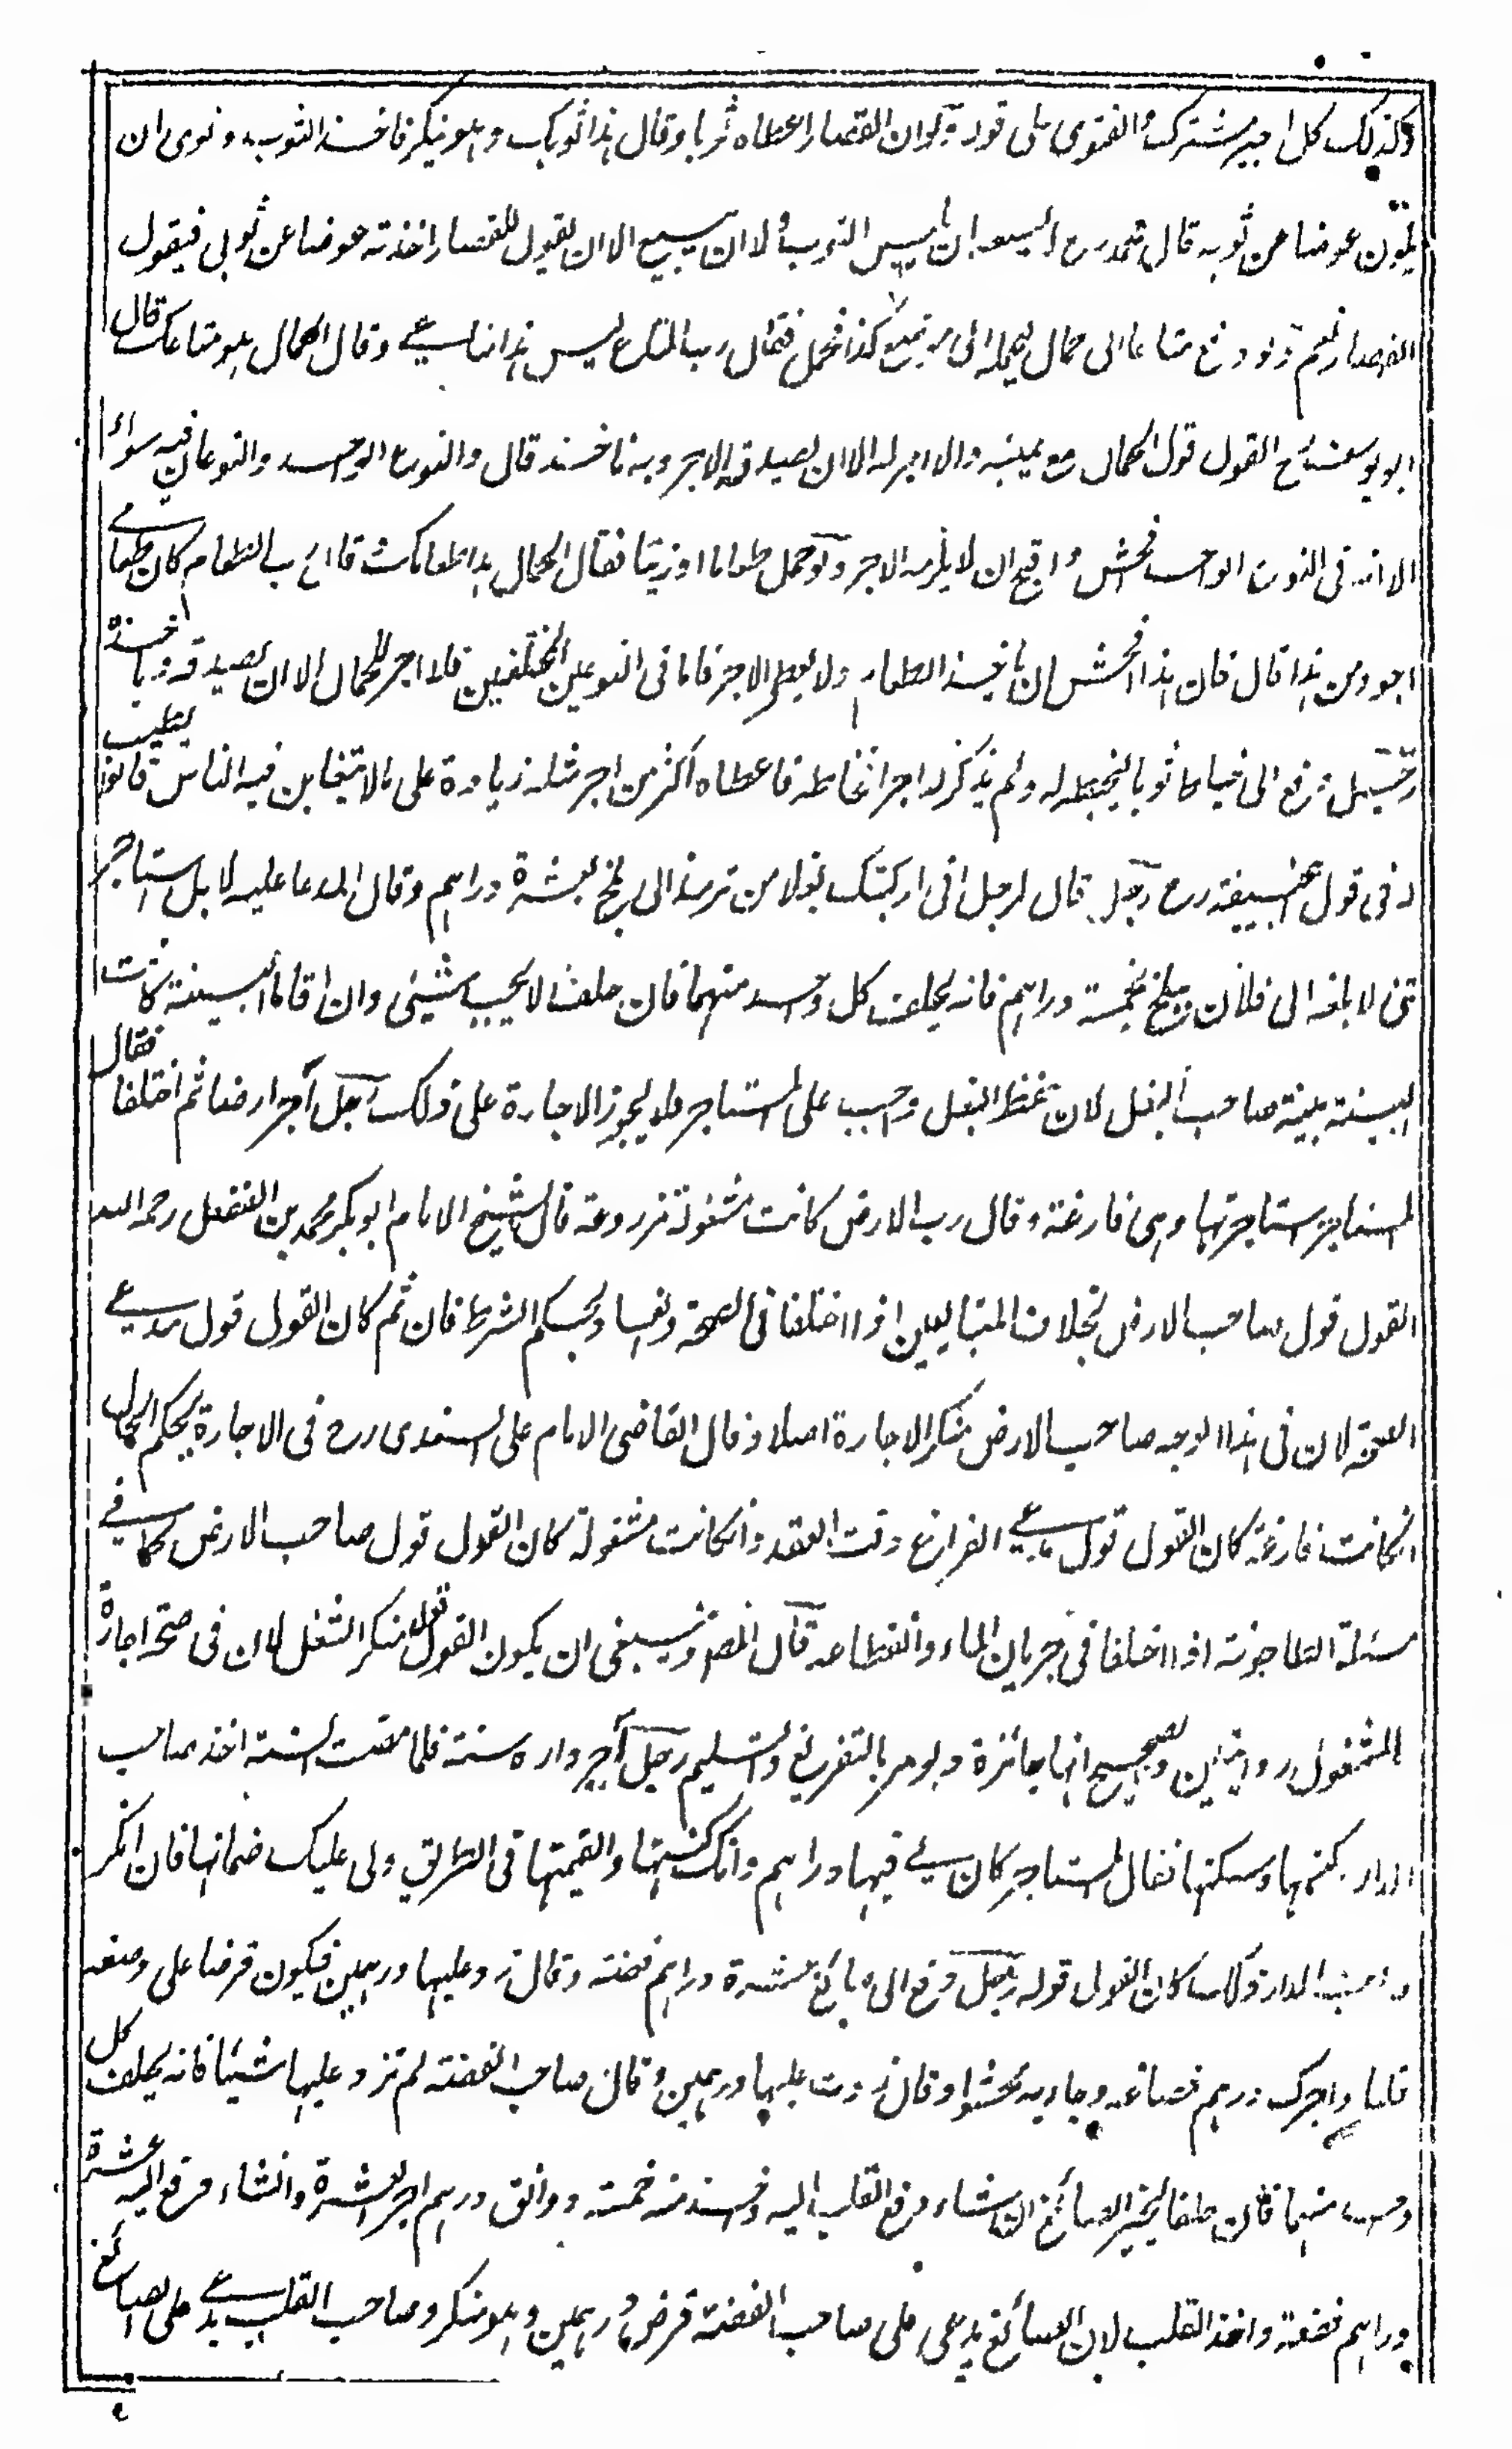 وكذلك كل اجير مشترك والفتوى على قوله ولو ان القصار اعطاه ثوبا وقال هذا ثوبك وهو منكر فاخذ الثوب ونوى ان
يكون عوضا عن ثوبه قال محمد رح ليس له ان يلبس الثوب ولا ان يبيع الا ان يقول للقصار اخذته عوضا عن ثوبي فيقول
القصار نعم ولو دفع متاعا الى حمال ليحمله الى موضع كذا فحمل فقال رب المتاع ليس هذا متاعي وقال الحمال هو متاعك قال
ابو يوسف رح القول قول الحمال مع يمينه والا اجر له الا ان يصدقه الاجر وبه ناخذ قال والنوع الواحد والنوعان فيه سواء
الا انه في النوع الواحد افحش واقبح ان لا يلزمه الاجر ولو حمل طعاما او زيتا فقال الحمال هذا طعامك وقال رب الطعام كان طعامي
اجود من هذا قال فان هذا افحش ان ياخذ الطعام ولا يعطي الاجر فاما في النوعين المختلفين فلا اجر للحمال الا ان يصدقه وياخذه
رجل دفع الى خياط ثوبا ليخيطه له ولم يذكر له اجرا فخاطه فاعطاه اكثر من اجر مثله زيادة على مالا يتغابن فيه الناس قالوا يطيب
له في قول ابي حنيفة رح رجل قال لرجل اني اركبتك بغلا من ترمذ الى بلخ بعشرة دراهم وقال المدعا عليه لا بل استاجر
تني لابلغه الى فلان ببلخ بخمسة دراهم فانه يحلف كل واحد منهما فان حلفا لا يجب شيئ وان اقاما البينة كانت
البينة بينة صاحب البغل لان حفظ البغل واجب على المستاجر فلا يجوز الاجارة على ذلك رجل آجر ارضا ثم اختلفا فقال
المستاجر استاجرتها وهي فارغة وقال رب الارض كانت مشغولة مزروعة قال الشيخ الامام ابو بكر محمد بن الفضل رحمه الله
القول قول صاحب الارض بخلاف المتبايعين اذا اختلفا في الصحة والفساد بحكم الشرط فان ثم كان القول قول مدعي
الصحة لان في هذا الوجه صاحب الارض منكر الاجارة اصلا وقال القاضي الامام علي السغدي رح في الاجارة يحكم الحال ان
كانت فارغة كان القول قول مدعي الفراغ وقت العقد وان كانت مشغولة كان القول قول صاحب الارض كما في
مسئلة الطاحونة اذا اختلفا في جريان الماء وانقطاعه قال المص وينبغي ان يكون القول قول منكر الشغل لان في صحة اجارة
المشغول روايتين والصحيح انها جائزة ويومر بالتفريغ والتسليم رجل آجر داره سنة فلما مضت السنة اخذ صاحب
الدار وكنسها وسكنها فقال المستاجر كان لي فيها دراهم وانك كنستها والقيتها في الطريق ولي عليك ضمانها فان انكر
صاحب الدار ذلك كان القول قوله رجل دفع الى صايغ عشرة دراهم فضة وقال زد عليها درهمين فيكون قرضا علي وصغه
قلبا واجرك درهم فصاغه وجاء به محشوا وقال زدت عليها درهمين وقال صاحب الفضة لم تزد عليها شيئا فانه يحلف كل
واحد منهما فان حلفا يخير الصائغ ان شاء دفع القلب اليه واخذ منه خمسة دوانق درهم اجر العشرة وان شاء دفع اليه عشرة
دراهم فضة واخذ القلب لان الصائغ يدعي على صاحب الفضة قرض درهمين وهو منكر وصاحب القلب يدعي على الصائغ